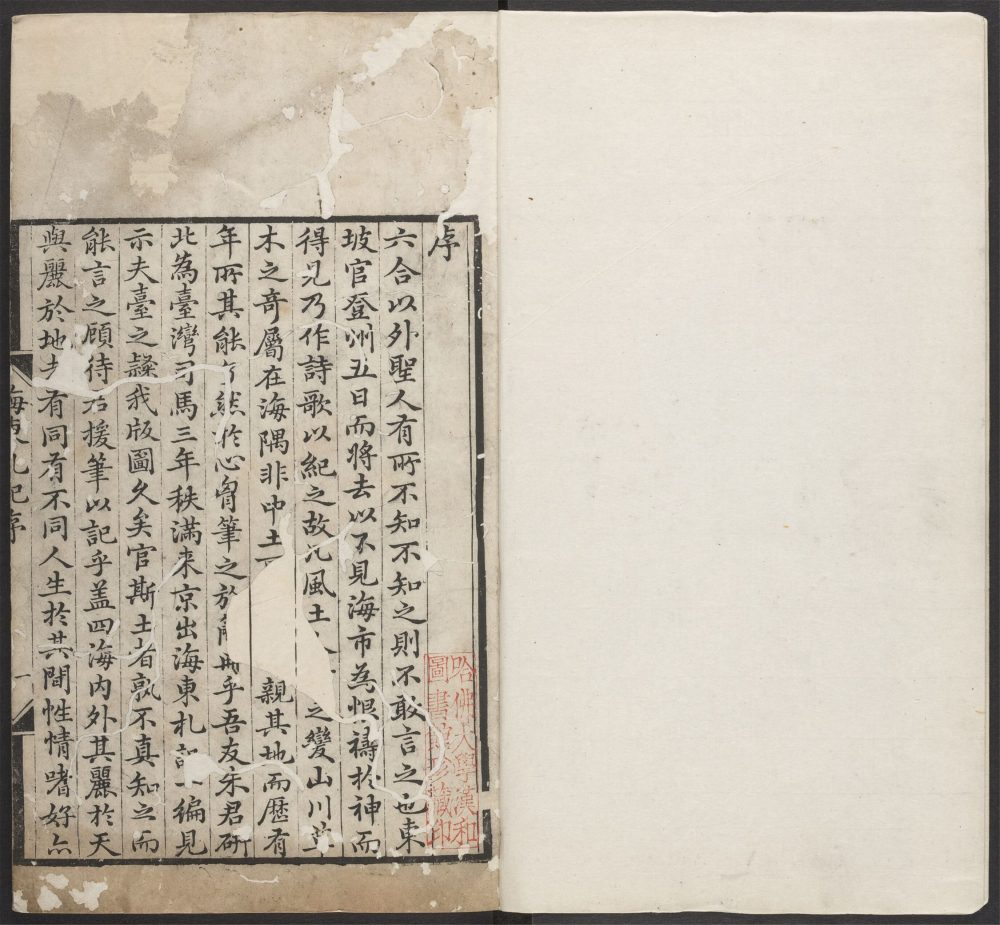 序
六合以外聖人有所不知不知之則不敢言之也東
坡官登州五日而將去以不見海市為恨禱於神而
得見乃作詩歌以紀之故凡風土之變山川草
木之奇屬在海隅非中土親其地而歷有
年所其能了然於心胷筆之於乎吾友朱君研
北為臺灣司馬三年秩滿來京出海東札記一編見
示夫臺之隸我版圖久矣官斯土者孰不真知之而
能言之顧待君援筆以記乎盖四海內外其麗於天
與麗於地者有同有不同人生於其間性情嗜好亦
海東札記序
一
哈佛大學漢和
圖書館珍藏印